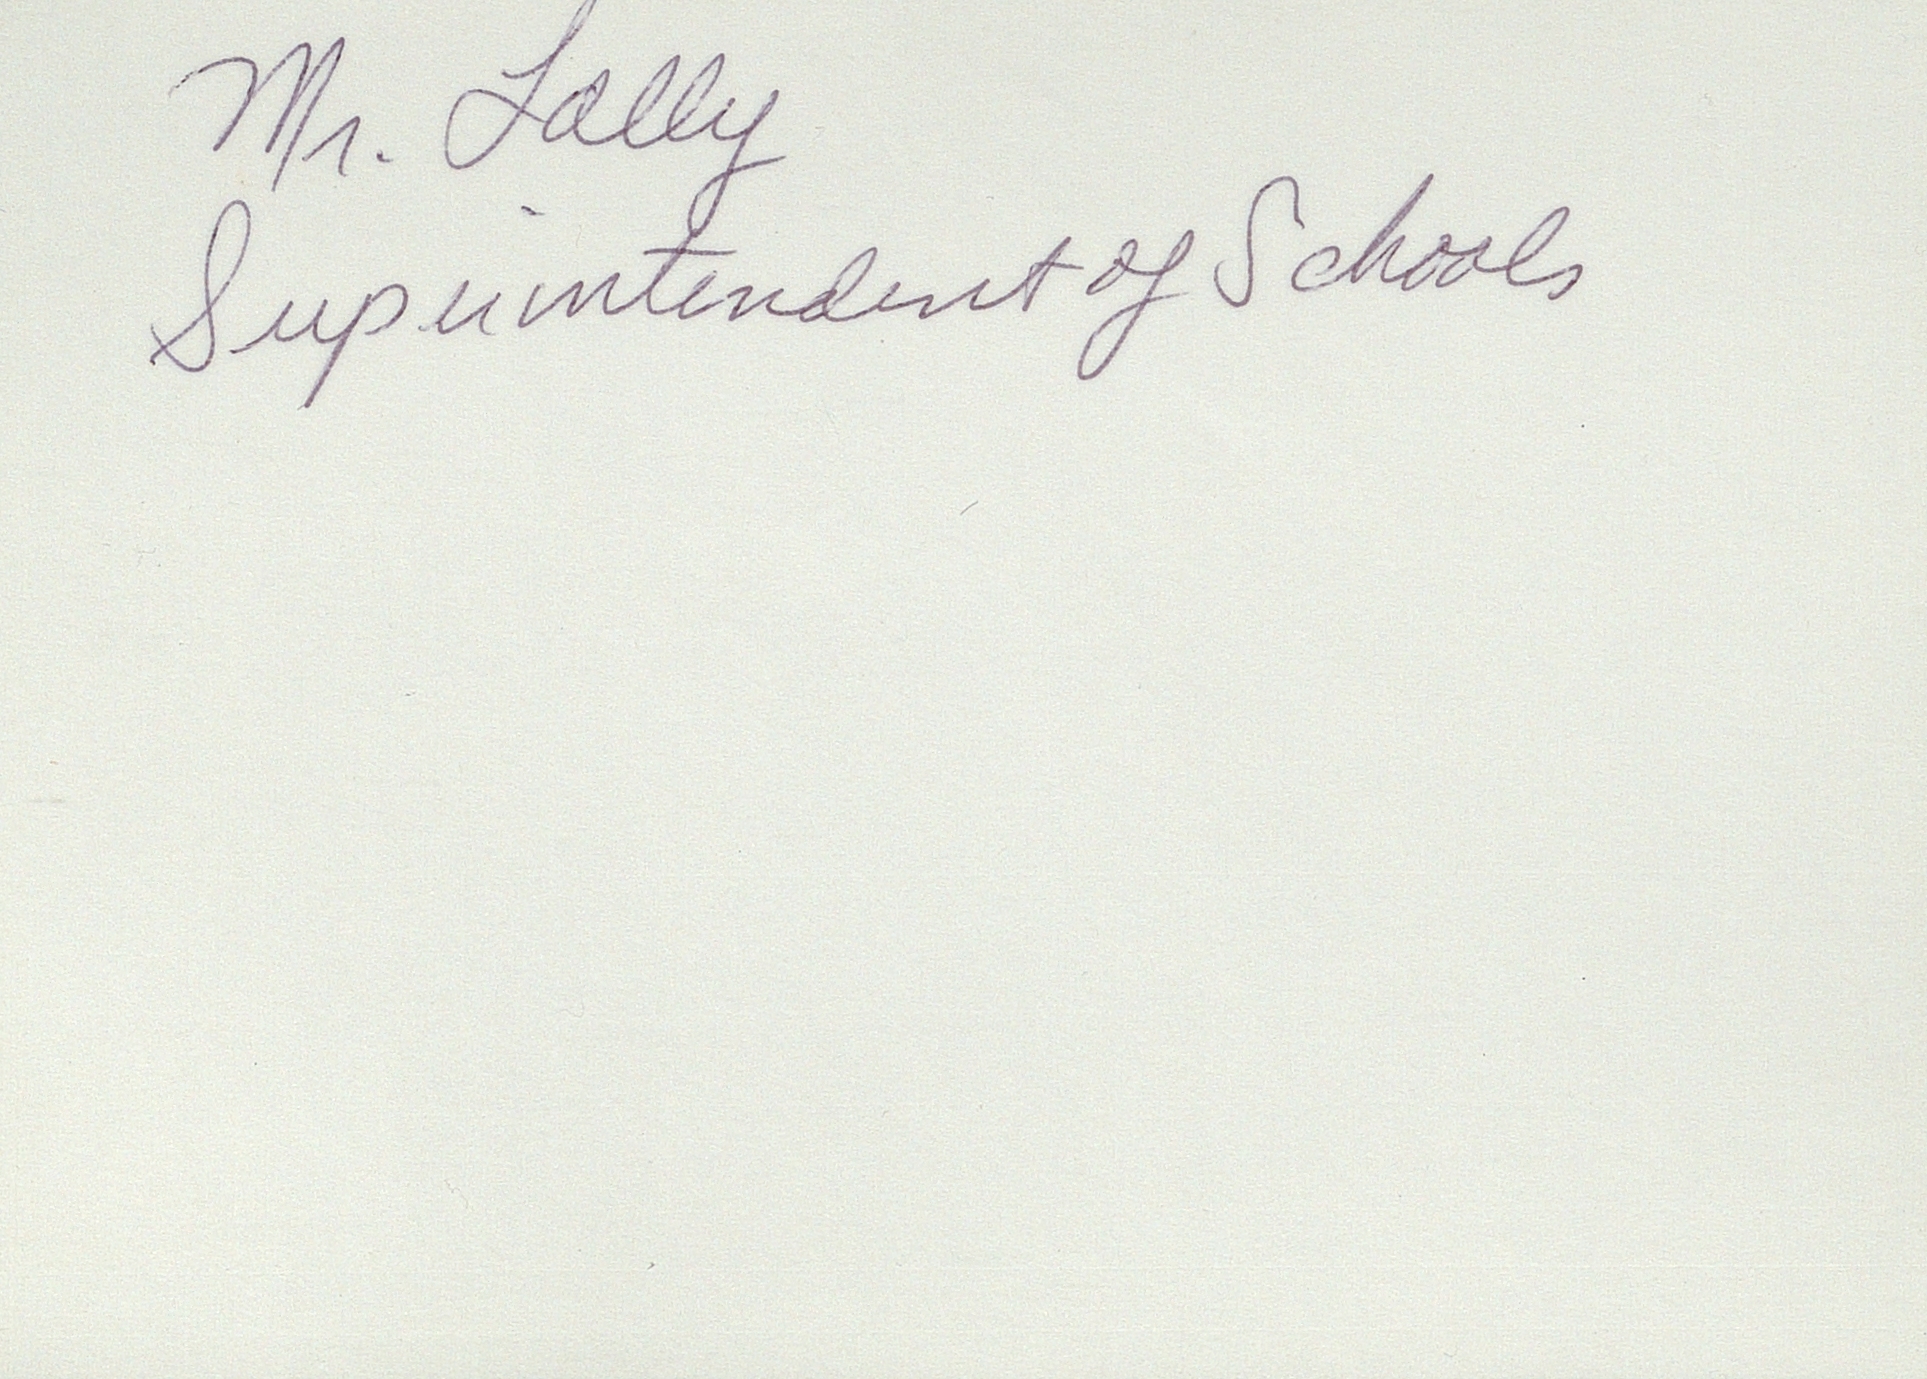 Mr. Lally
Superintendent of Schools